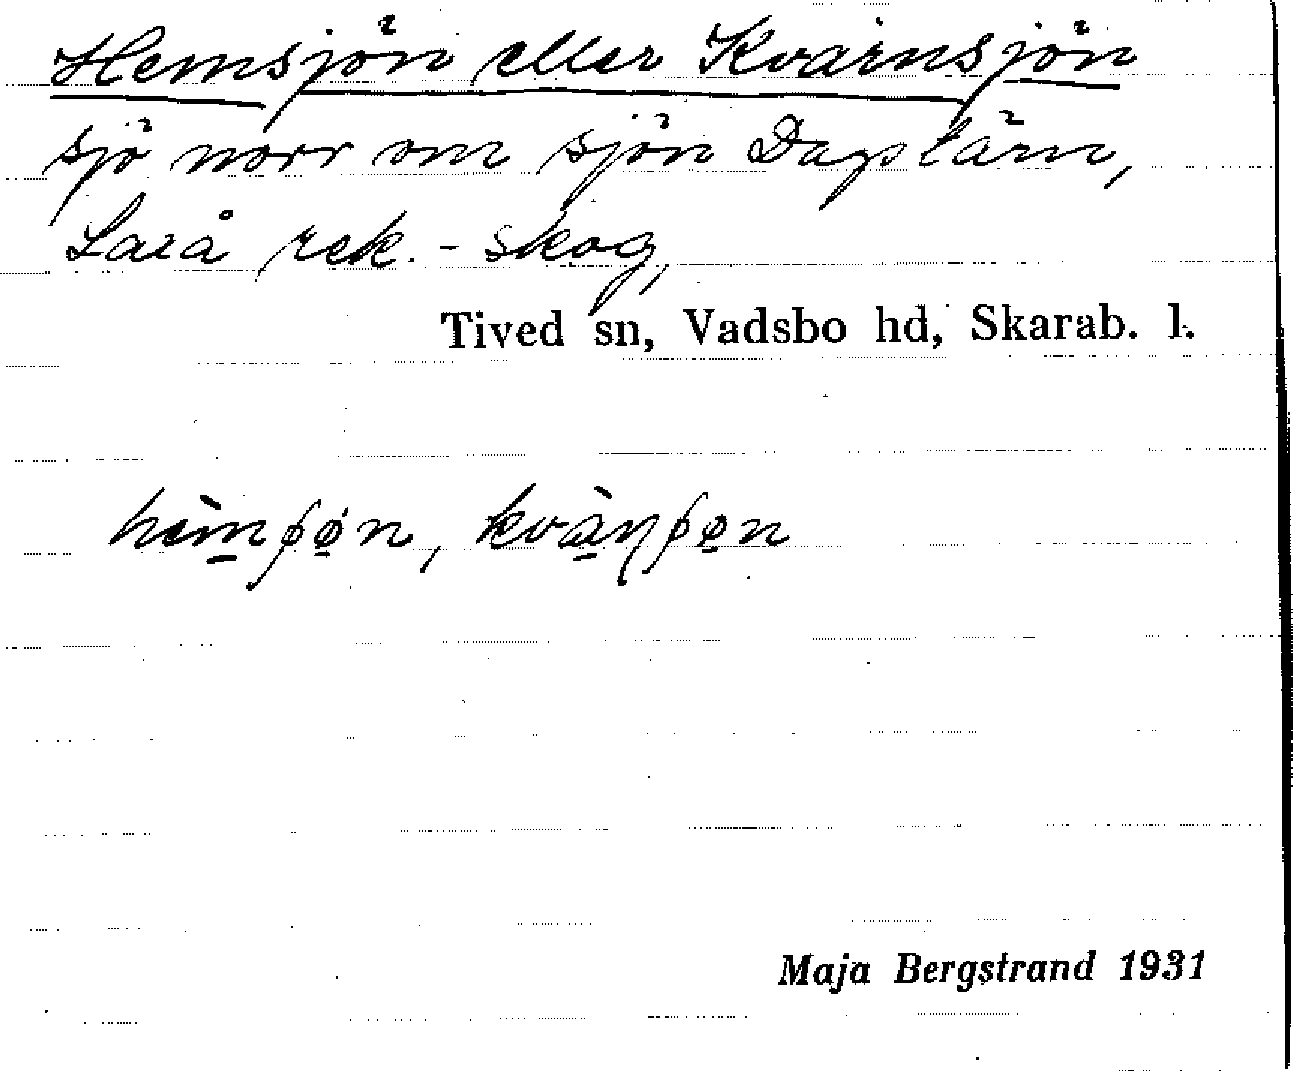 Hemsjön eller Kvarnsjön
sjö norr om sjön Dagstärn,
Laxå rek. - skog,
Tived sn, Vadsbo hd, Skarab. l.
Maja Bergstrand 1931